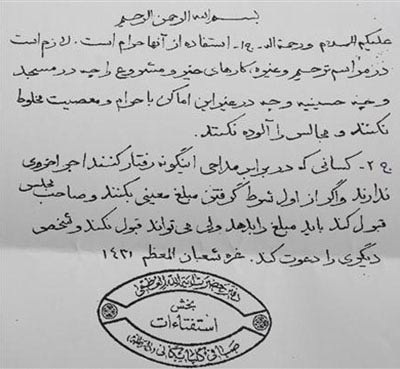 بسم الله الرحمن الرحیم
علیکم السلام و رحمة الله - ج۱- استفاده از آنها حرام است. لازم است
در مراسم ترحیم و غیره، کارهای خیر و مشروع را چه در مسجد
و چه حسینیه و چه در غیر این اماکن با حرام و معصیت مخلوط
نکنند و مجالس را آلوده نکنند.
ج۲- کسانی که در برابر مداحی اینگونه رفتار کنند اجر اخروی
ندارند و اگر از اول شرط گرفتن مبلغ معینی بکنند و صاحب مجلس
قبول کند باید مبلغ را بدهد ولی می‌تواند قبول نکند و شخص
دیگری را دعوت کند. غره شعبان المعظم ۱۴۳۱
دفتر حضرت آیة الله العظمی
بخش
استفتاءات
صافی گلپایگانی